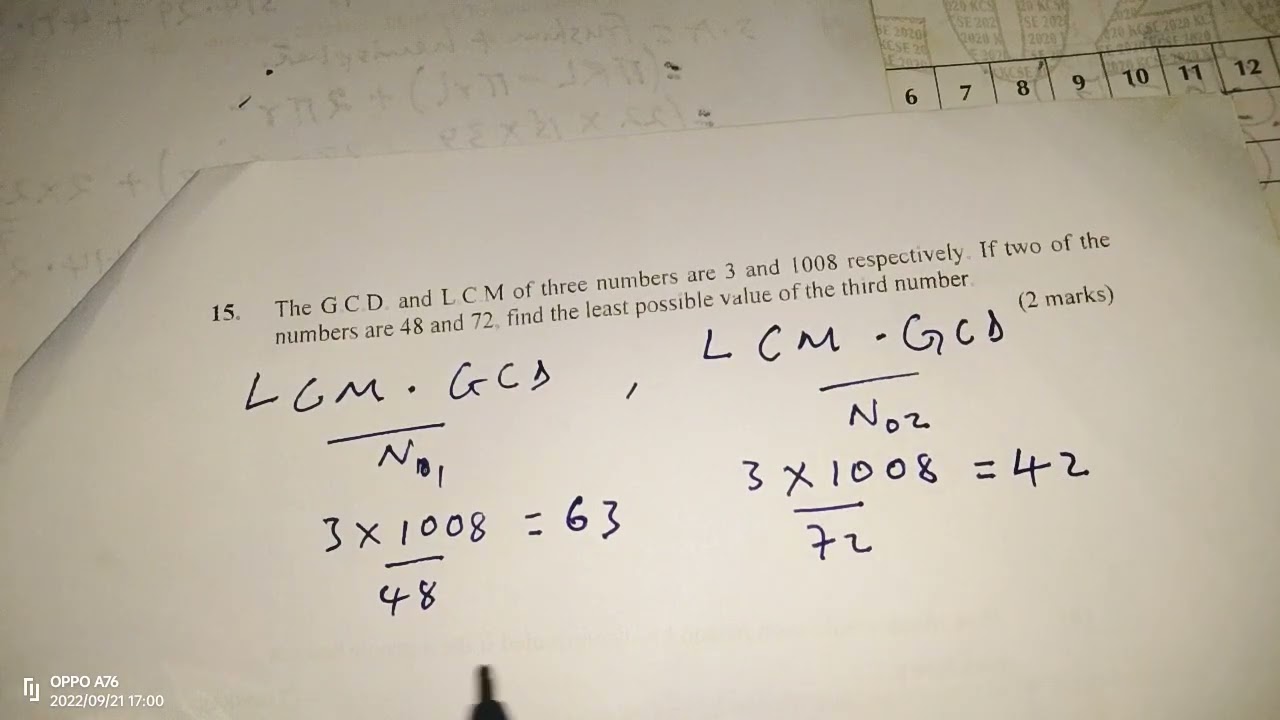 6 7 8 9 10 11 12
15. The G.C.D. and L.C.M of three numbers are 3 and 1008 respectively. If two of the
numbers are 48 and 72, find the least possible value of the third number.
(2 marks)
LCM . GCD , LCM . GCD
No1 No2
3 × 1008 = 63 3 × 1008 = 42
48 72
OPPO A76
2022/09/21 17:00